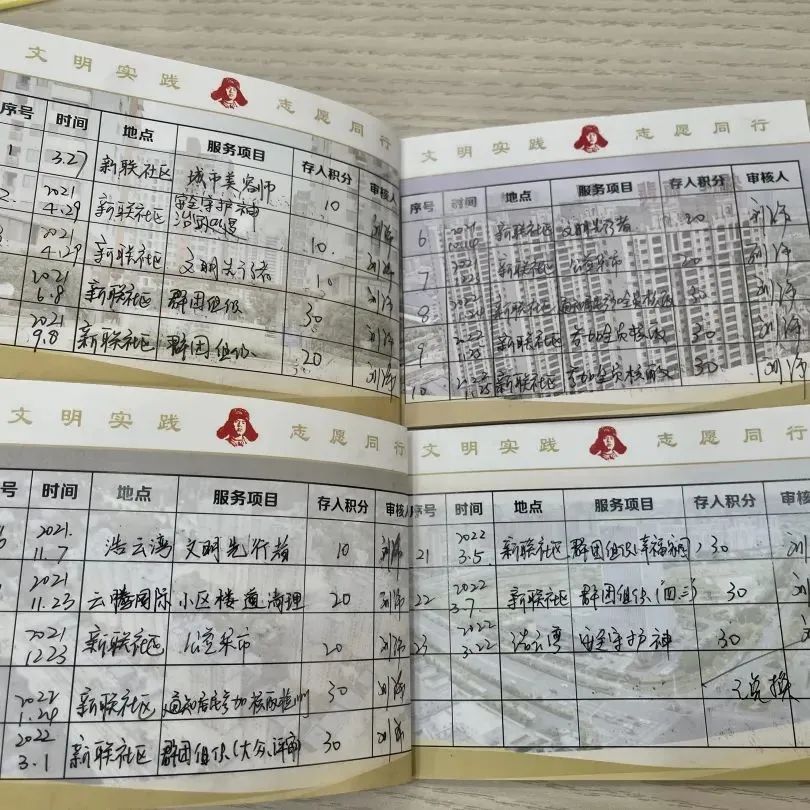 文明实践 志愿同行
序号 时间 地点 服务项目 存入积分 审核人
1 3.27 新联社区 城市美容师 10
2 2021 4.29 新联社区 安全守护神 10 刘
3 2021 4.29 新联社区 文明先行者 10 刘
2021 6.8 新联社区 群团组织 30 刘
2021 9.8 新联社区 群团组织 20 刘
文明实践 志愿同行
序号 时间 地点 服务项目 存入积分 审核人
6 2021 新联社区 文明先行者 20 刘
7 新联社区 公益集市 20 刘
8 新联社区 30 刘
9 2022 新联社区 参加全员核酸 30 刘
10 新联社区 参加全员核酸 30 刘
文明实践 志愿同行
号 时间 地点 服务项目 存入积分 审核人
2021. 11.7 浩云湾 文明先行者 10 刘
2021 11.23 云腾国际 小区楼道清理 20 刘
2021 12.23 新联社区 公益集市 20 刘
2022 1.24 新联社区 通知居民参加核酸检测 30 刘
2022 3.1 新联社区 群团组织 30 刘
文明实践 志愿同行
序号 时间 地点 服务项目 存入积分 审核
21 2022 3.5. 新联社区 群团组织 30 刘
22 2022 3.7. 新联社区 群团组织 30 刘
23 2022 3.22 浩云湾 安全守护神 30 刘
已兑换